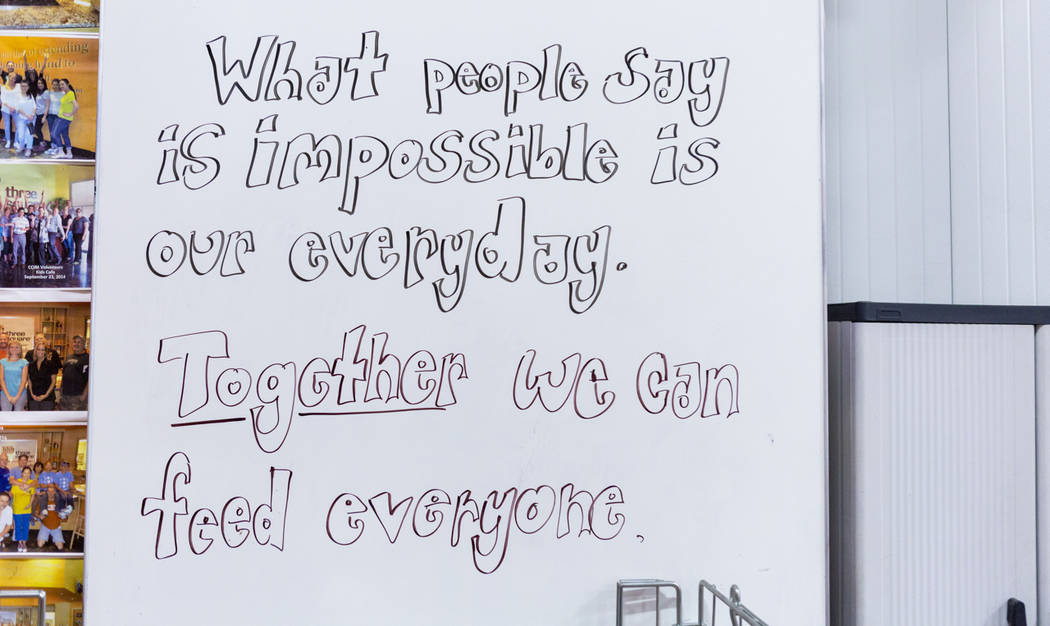 What people say
is impossible is
our everyday.
Together we can
feed everyone.
three
CCIM Volunteers
Kids Cafe
September 23, 2014
three
square
three